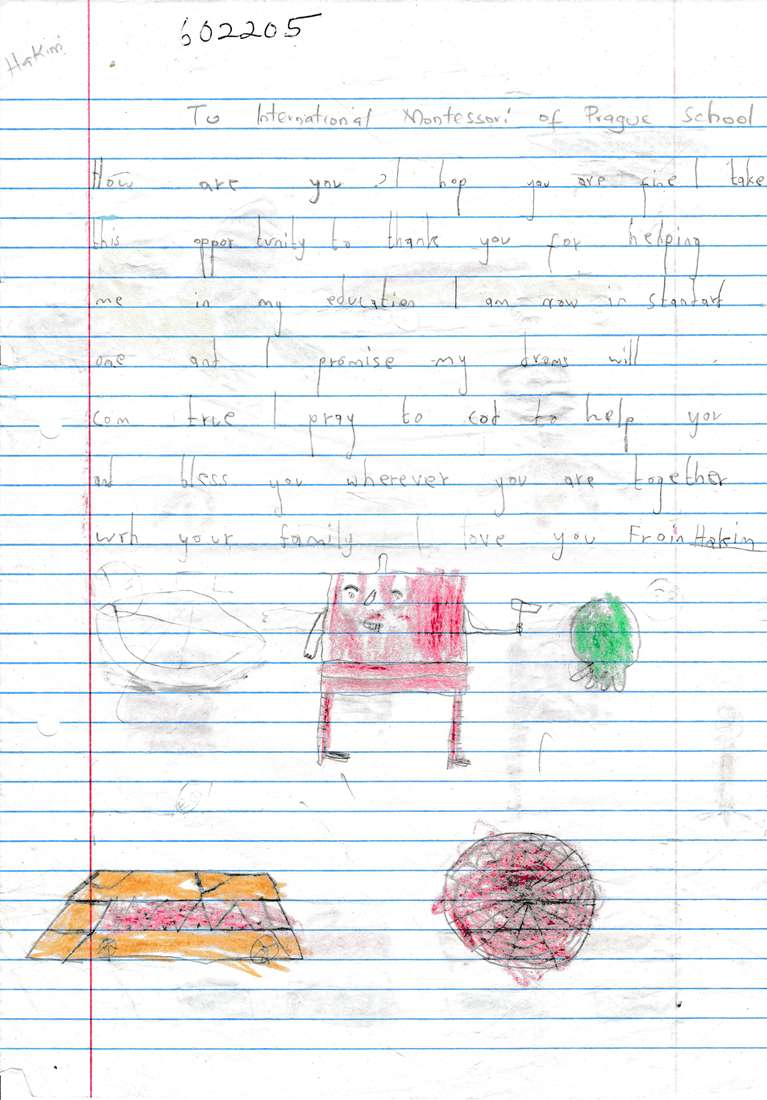 602205
Hakim
To International Montessori of Prague School
How are you ? I hop you are fine I take
this oppor tunity to thank you for helping
me in my education I am now in standart
one and I promise my drams will
com true I pray to cod to help you
and bless you wherever you are together
wrh your family I love you From Hakim